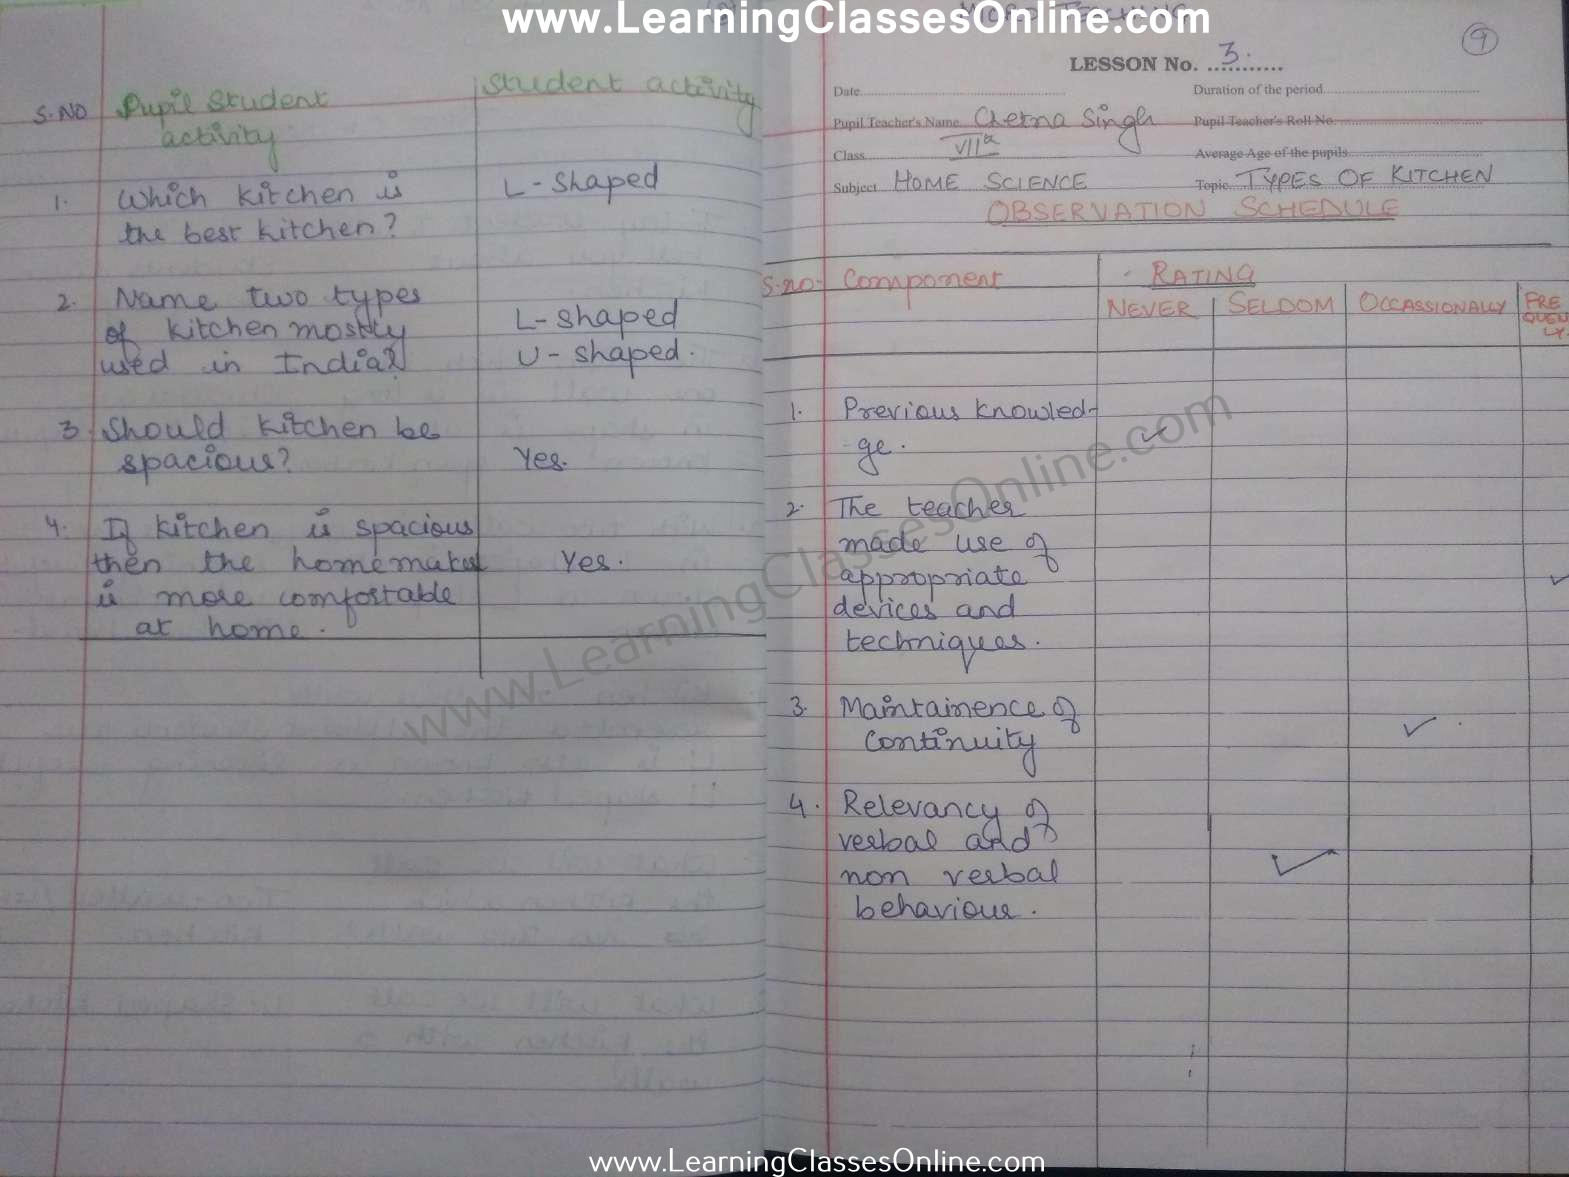 www.LearningClassesOnline.com
S.NO Pupil Student activity Student activity
1. Which kitchen is L-shaped
the best kitchen?
2. Name two types
of kitchen mostly L-shaped
used in India? U-shaped.
3 Should kitchen be
spacious? Yes.
4. If kitchen is spacious
then the homemaker Yes.
is more comfortable
at home.
9
LESSON No. 3.
Date
Duration of the period
Pupil Teacher's Name Chetna Singh
Pupil Teacher's Roll No.
Class VIIth
Average Age of the pupils
Subject HOME SCIENCE
Topic TYPES OF KITCHEN
OBSERVATION SCHEDULE
S.no. Component RATING
NEVER SELDOM OCCASSIONALLY FRE
QUEN
LY.
1. Previous knowled-
ge. ✓
2. The teacher
made use of
appropriate ✓
devices and
techniques.
3. Maintainence of ✓
continuity
4. Relevancy of
verbal and
non verbal ✓
behaviour.
www.LearningClassesOnline.com
www.LearningClassesOnline.com